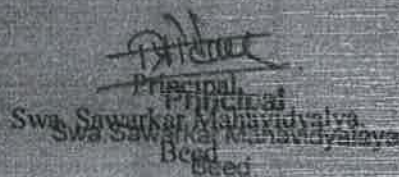 Principal
Principal
Swa. Sawarkar Mahavidyalya,
Swa Sawarkar Mahavidyalaya
Beed
Beed